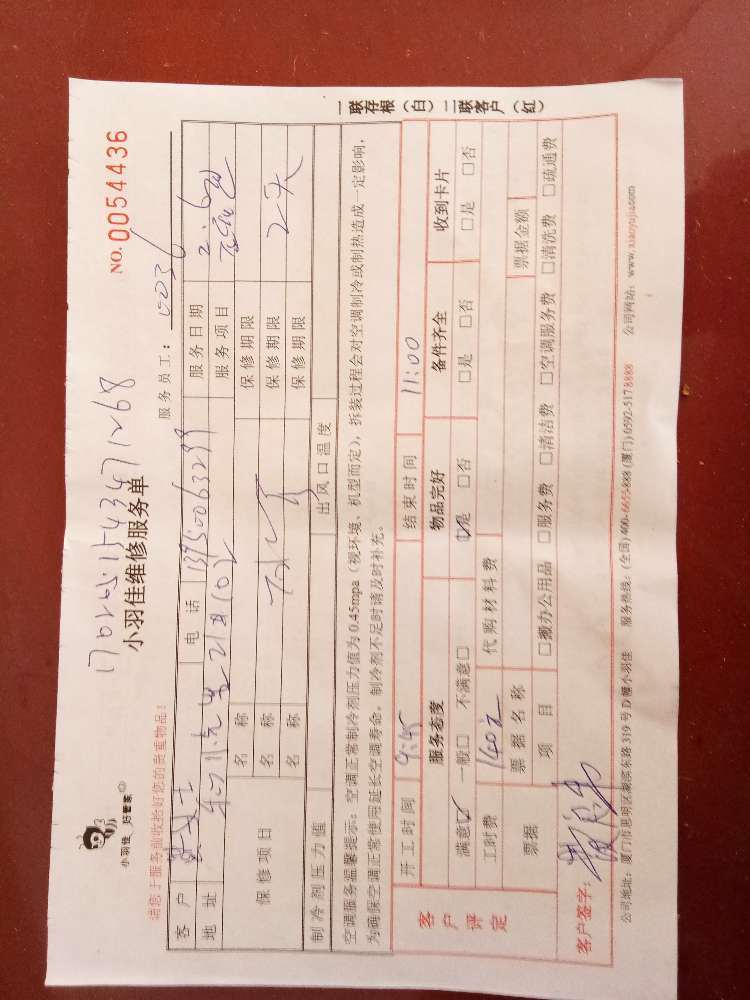 小羽佳 好管家
小羽佳维修服务单
NO. 0054436
请您于服务前收拾好您的贵重物品！
服务员工： 0036
客户
电话
服务日期 2.6
地址
服务项目
保修项目
名称
保修期限
名称
保修期限
名称
保修期限 2天
制冷剂压力值
出风口温度
空调服务温馨提示：空调正常制冷剂压力值为0.45mpa（视环境、机型而定），拆装过程会对空调制冷或制热造成一定影响，
为确保空调正常使用延长空调寿命，制冷剂不足时请及时补充。
客户评定
开工时间 9:45 结束时间 11:00
服务态度 物品完好 备件齐全 收到卡片
满意☑ 一般□ 不满意□ ☑是 □否 □是 □否 □是 □否
工时费 140元 代购材料费
票据 票据名称 票据金额
项目 □搬办公用品 □服务费 □清洁费 □空调服务费 □清洗费 □疏通费
客户签字：
公司地址：厦门市思明区湖滨东路319号D幢小羽佳 服务热线：(全国)400-6655-888 (厦门)0592-5178888 公司网站：www.xiaoyujia.com
一联存根（白）二联客户（红）